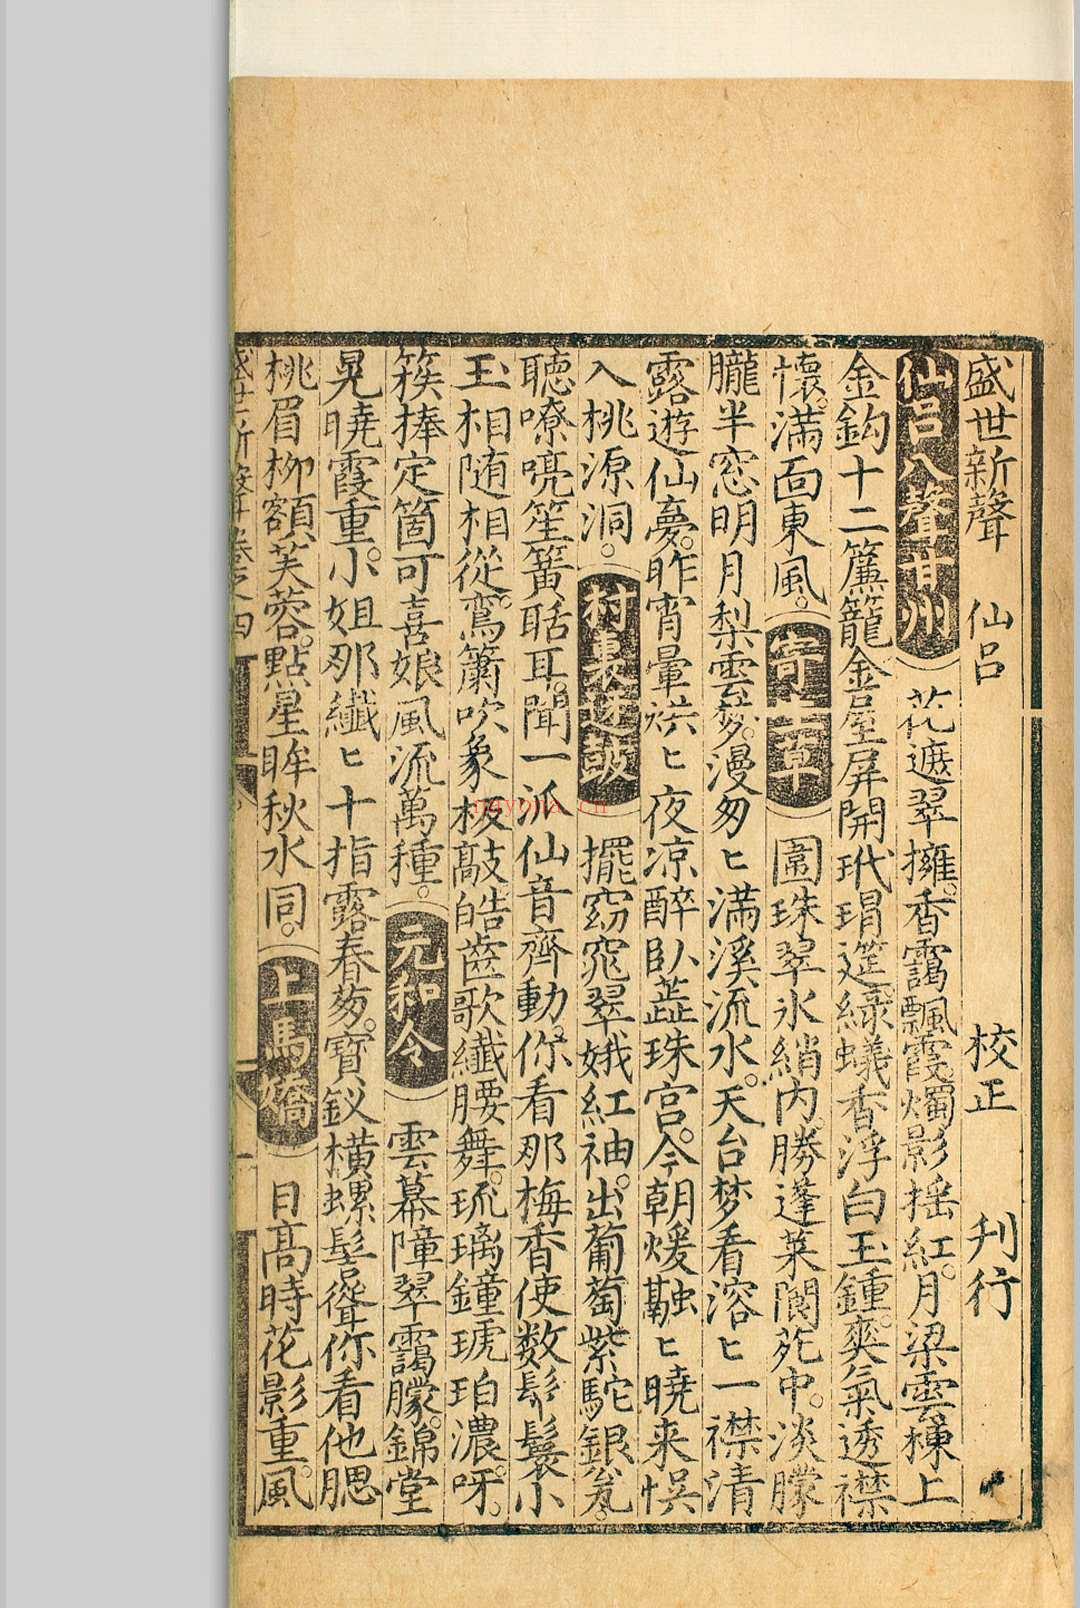 盛世新聲　仙呂　校正　刋行
仙呂八聲甘州　花遮翠擁。香靄飄霞。燭影揺紅。月梁雲棟上
金鈎十二簾籠金屋屏開玳瑁筵。緑蟻香浮白玉鍾。爽氣透襟
懷。滿面東風。　圍珠翠氷綃内。勝蓬莱閬苑中。淡朦
朧半窓明月梨雲夢。漫匆〻滿溪流水。天台梦看溶〻一襟清
露遊仙夢。昨宵暈烘〻夜凉醉臥蘂珠宫。今朝煖融〻曉来悮
入桃源洞。　村裏迓皷　擺窈窕翠娥紅袖。出葡萄紫駝銀瓮。
聽嘹喨笙簧聒耳。聞一派仙音齊動。你看那梅香使数鬅鬟小
玉相随相從。鸞簫吹象板敲。皓齒歌纎腰舞。琉璃鐘琥珀濃。呀。
簇捧定箇可喜娘風流萬種。　元和令　雲幕障翠靄朦。錦堂
晃曉霞重。小姐那纎〻十指露春葱。寳釵横螺髻聳你看他腮
桃眉柳額芙蓉。點星眸秋水同。　上馬嬌　日髙時花影重。風
盛世新聲卷之四　一